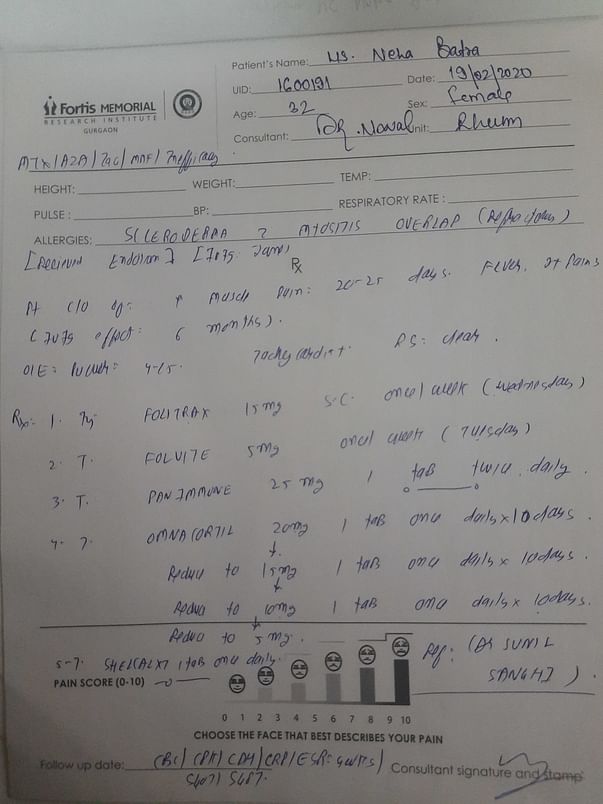 Patient's Name: Ms. Neha Batra
Fortis MEMORIAL
RESEARCH INSTITUTE
GURGAON
UID: 1600191 Date: 19/02/2020
Age: 32 Sex: female
Consultant: DR. Naval Unit: Rheum
MTX/AZA/Tac/MMF/Inefficacy
HEIGHT: WEIGHT: TEMP:
PULSE: BP: RESPIRATORY RATE:
ALLERGIES: SCLERODERMA MYOSITIS OVERLAP (Refractory)
[Received Endoxan]
Rx
Pt c/o ↑ muscle pain: 20-25 days. Fever, Jt pains
effect: 6 months).
O/E: 4-/5. Tachycardia+. RS: clear.
Rx: 1. FOLITRAX 15mg S.C. once/week (Wednesday)
2. T. FOLVITE 5mg once/week (Tuesday)
3. T. PANIMMUNE 25 mg 1 tab twice daily.
4. T. OMNACORTIL 20mg 1 tab once daily x 10 days.
↓
Reduce to 15mg 1 tab once daily x 10 days.
↓
Reduce to 10mg 1 tab once daily x 10 days.
↓
Reduce to 5 mg.
5-T. SHELCAL XT 1 tab once daily.
Ref: (Dr SUNIL
SANGHI).
PAIN SCORE (0-10)
0 1 2 3 4 5 6 7 8 9 10
CHOOSE THE FACE THAT BEST DESCRIBES YOUR PAIN
Follow up date: CBC/CPK/LDH/CRP/ESR: 4 wks/
SGOT/SGPT.
Consultant signature and stamp